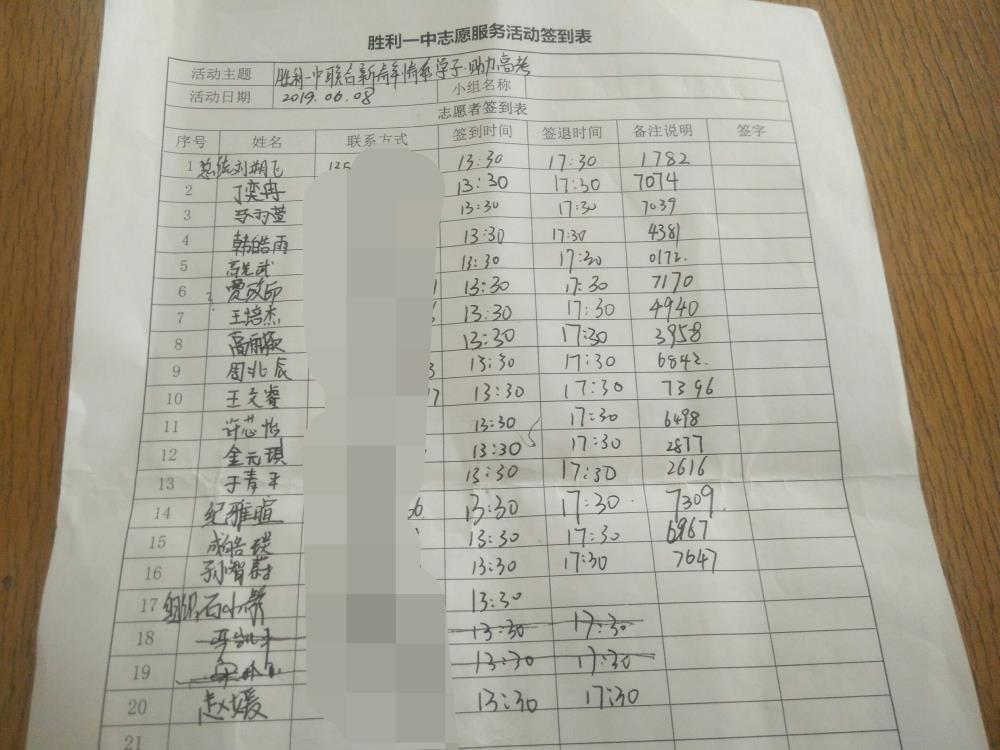 胜利一中志愿服务活动签到表
活动主题 胜利一中联合新青年情系学子·助力高考
活动日期 2019.06.08 小组名称
志愿者签到表
序号 姓名 联系方式 签到时间 签退时间 备注说明 签字
1 刘朔飞 135 13:30 17:30 1782
2 丁奕冉 13:30 17:30 7074
3 13:30 17:30 7039
4 韩皓雨 13:30 17:30 4381
5 13:30 17:30 0172.
6 13:30 17:30 7170
7 王培杰 13:30 17:30 4940
8 高雨颖 13:30 17:30 3958
9 周兆辰 3 13:30 17:30 6842.
10 王文睿 17 13:30 17:30 7396
11 许芯怡 13:30 17:30 6498
12 金元琪 13:30 17:30 2877
13 于青平 13:30 17:30 2616
14 纪雅暄 26 13:30 17:30 7309.
15 成皓琪 13:30 17:30 6967
16 孙智蔚 13:30 17:30 7647
17 组织:石小 13:30
18 13:30 17:30
19 13:30 17:30
20 赵媛 13:30 17:30
21